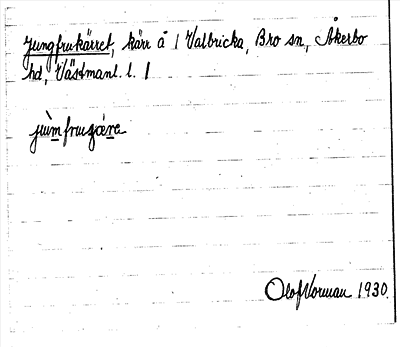 Jungfrukärret, kärr å 1 Valbricka, Bro sn, Åkerbo
hd, Västmanl. l. 1
Olof Norman 1930.